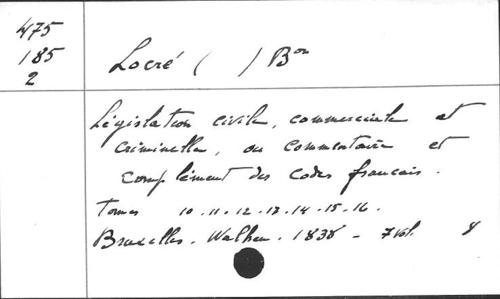 475
185
2
Locré ( ) Bon
Législation civile, commerciale et
criminelle, ou commentaire et
complément des codes français.
Tomes 10.11.12.13.14.15.16.
Bruxelles. Walhen. 1838 - 7 vol. 8